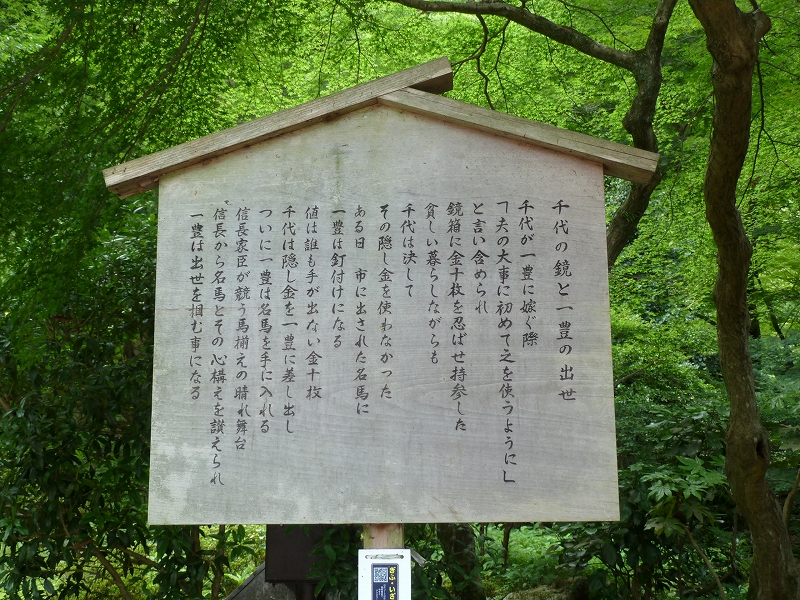 千代の鏡と一豊の出世
千代が一豊に嫁ぐ際
「夫の大事に初めて之を使うように」
と言い含められ
鏡箱に金十枚を忍ばせ持参した
貧しい暮らしながらも
千代は決して
その隠し金を使わなかった
ある日 市に出された名馬に
一豊は釘付けになる
値は誰も手が出ない金十枚
千代は隠し金を一豊に差し出し
ついに一豊は名馬を手に入れる
信長家臣が競う馬揃えの晴れ舞台
信長から名馬とその心構えを讃えられ
一豊は出世を掴む事になる